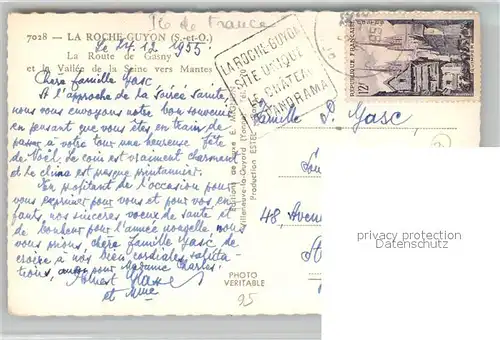 Ile de France
7028 - LA ROCHE-GUYON (S.-et-O.)
le 24.12 1955.
La Route de Gasny
et la Vallée de la Seine vers Mantes
Chère famille Gasc
A l'approche de la soirée sainte,
nous vous envoyons notre bon souvenir
en pensant que vous êtes en train de
passer à votre tour une heureuse fête
de Noël. Le coin est vraiment charmant
et le climat est presque printannier.
En profitant de l'occasion pour
vous exprimer pour vous et pour vos en-
fants, nos sincères voeux de santé et
de bonheur pour l'année nouvelle, nous
vous prions, chère famille Gasc, de
croire à nos bien cordiales saluta-
tions, aussi pour Madame Charles.
Ernest
et Mme
LA ROCHE-GUYON
SITE UNIQUE
CHATEAU
PANORAMA
1955
REPUBLIQUE FRANÇAISE
12F
Famille P. Gasc
48, Avenue
Editions de luxe
Villeneuve-la-Guyard (Yonne)
Production ESTEL
PHOTO
VERITABLE
95
privater Sammler
Datenschutz